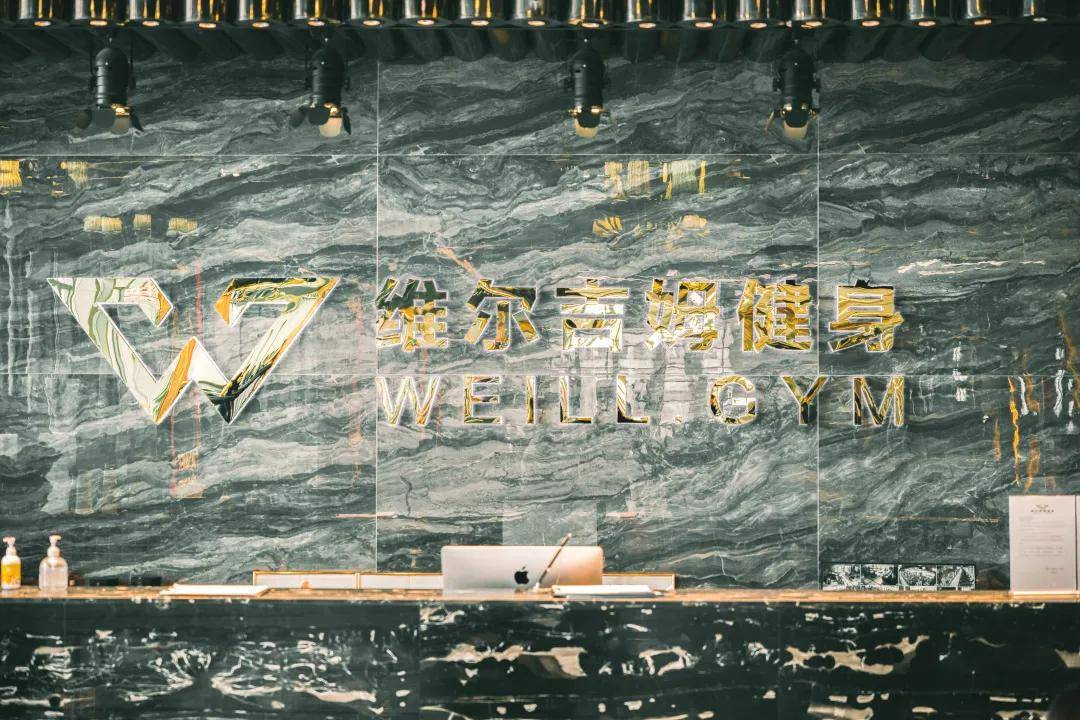 维尔吉姆健身
WEILL.GYM